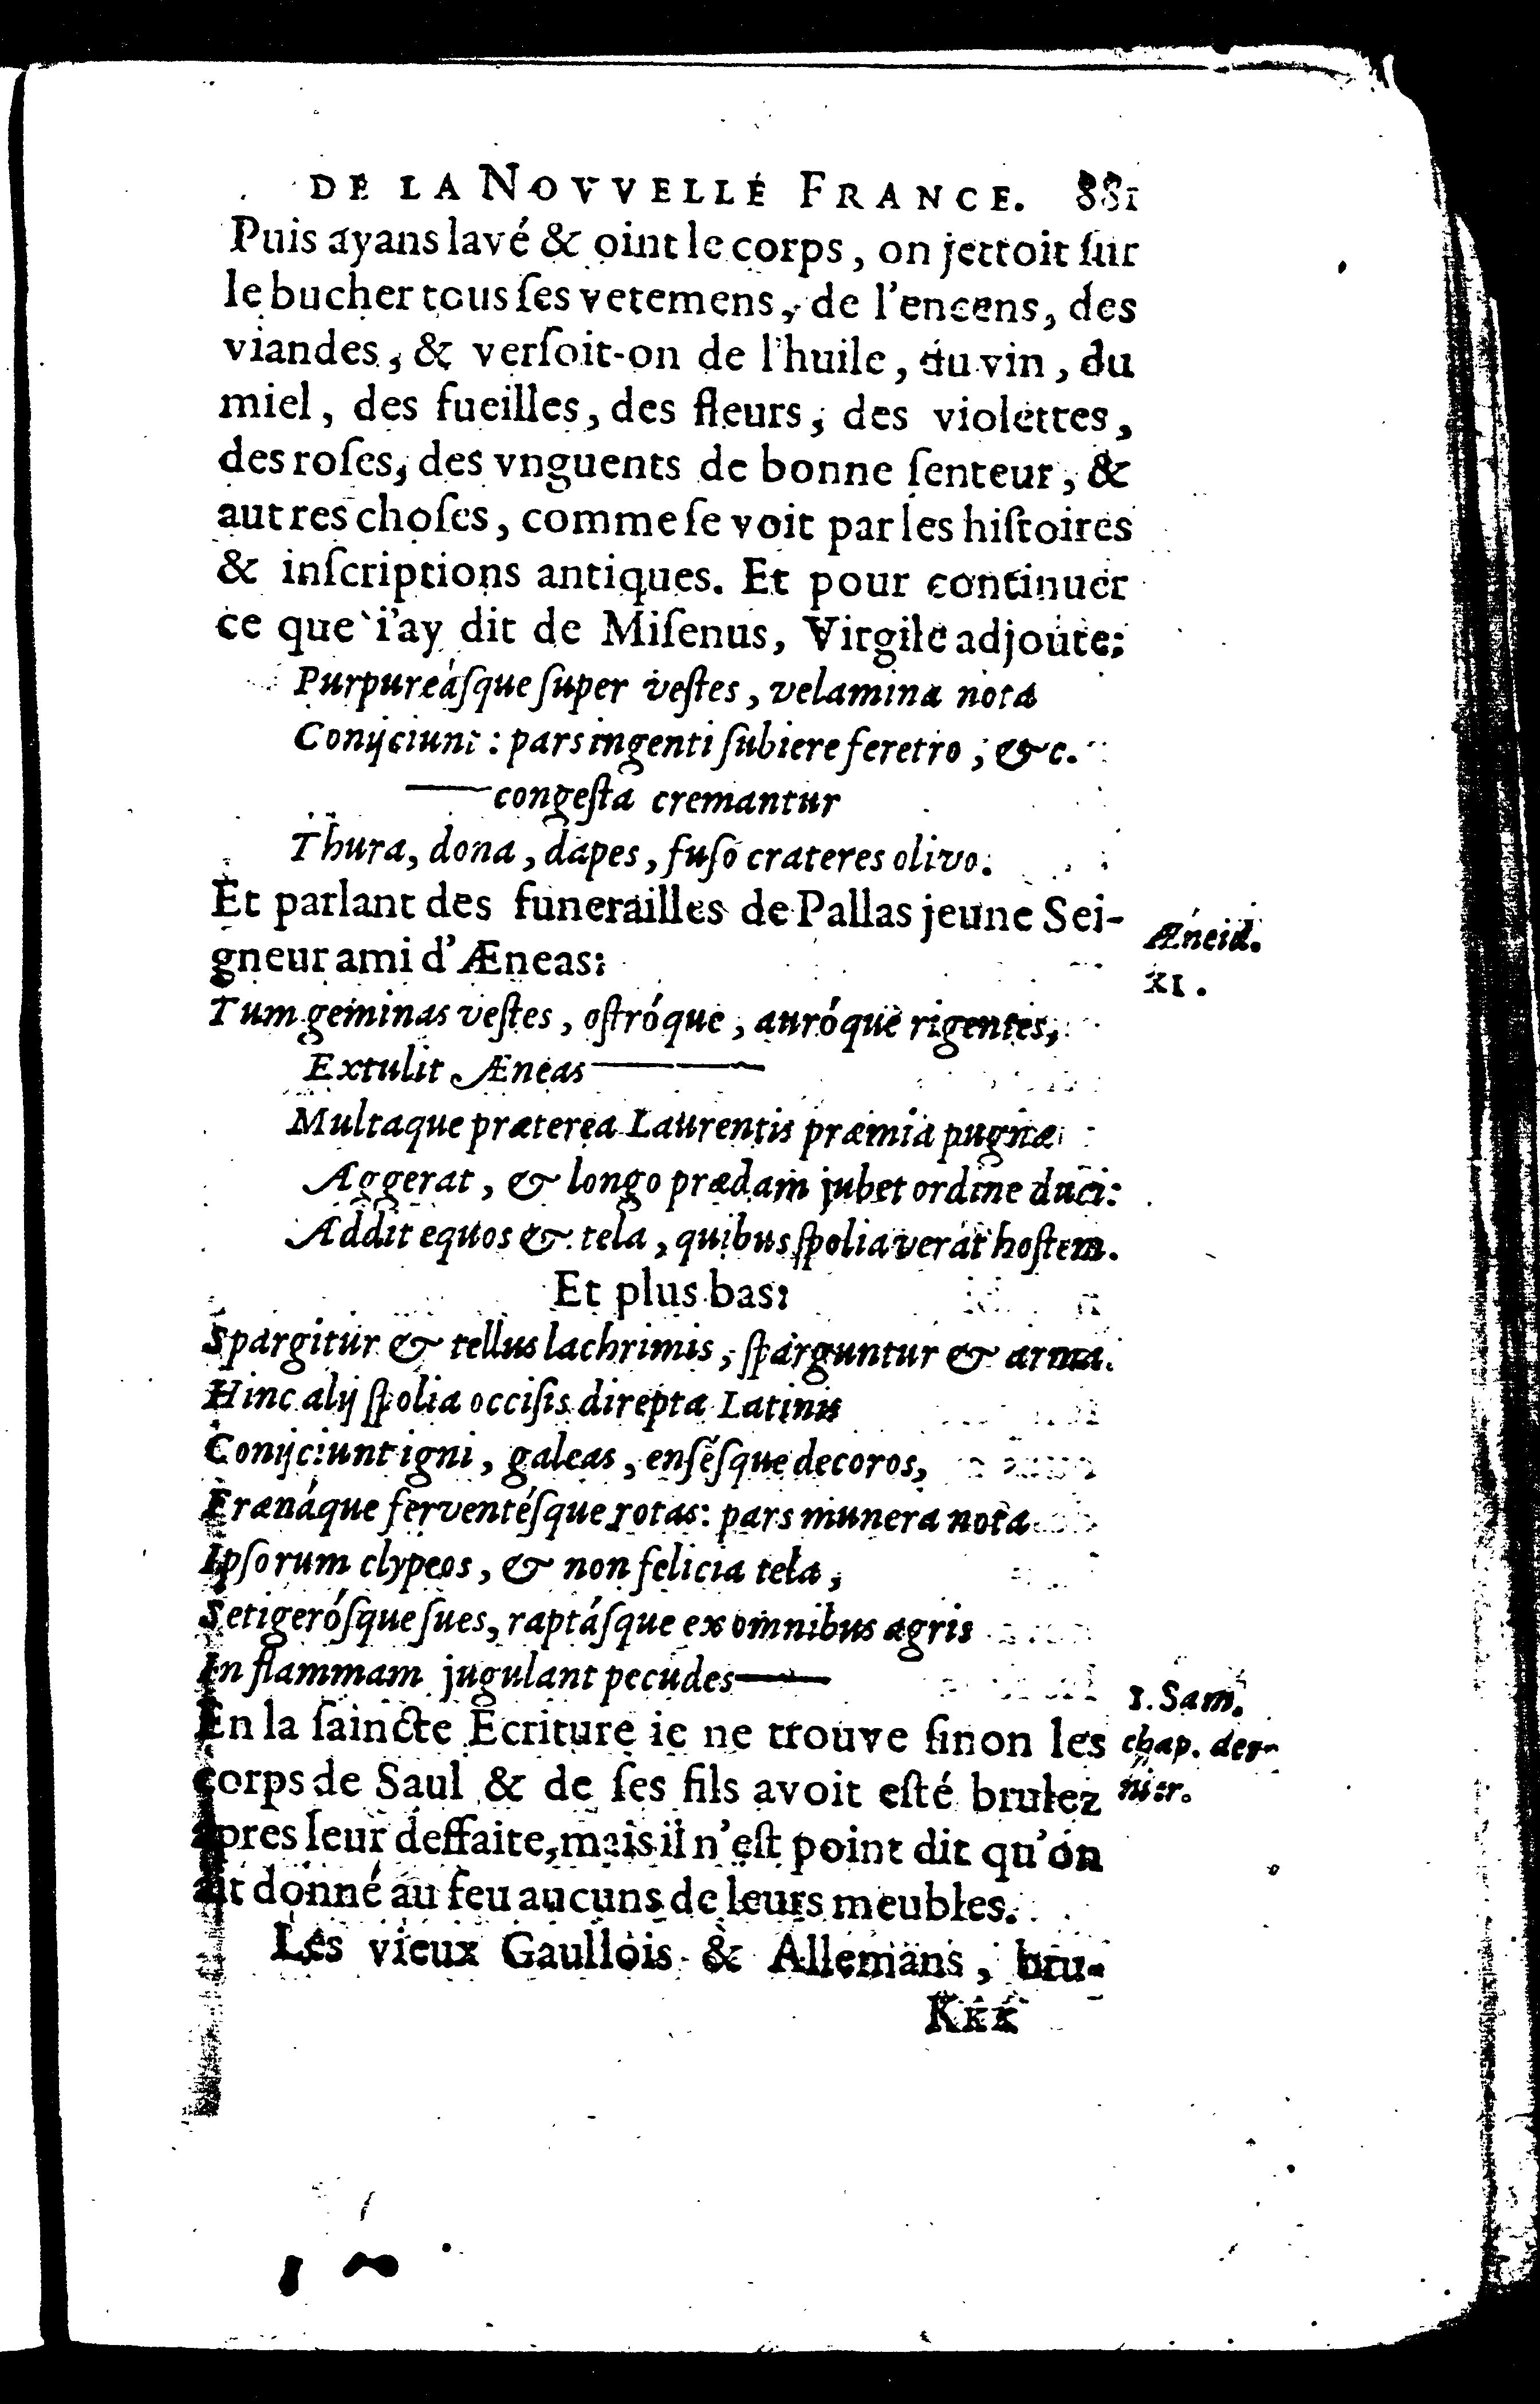 DE LA NOVVELLE FRANCE. 881
Puis ayans lavé & oint le corps, on jettoit ſur
le bucher tous ſes vetemens, de l'encens, des
viandes, & verſoit-on de l'huile, du vin, du
miel, des fueilles, des fleurs, des violettes,
des roſes, des vnguents de bonne ſenteur, &
autres choſes, comme ſe voit par les hiſtoires
& inſcriptions antiques. Et pour continuer
ce que i'ay dit de Miſenus, Virgile adjoute:
Purpureáſque ſuper veſtes, velamina nota
Conijciunt: pars ingenti ſubiere feretro, &c.
—congeſta cremantur
Thura, dona, dapes, fuſo crateres olivo.
Et parlant des funerailles de Pallas jeune Sei-
gneur ami d'Æneas:
Æneid.
XI.
Tum geminas veſtes, oſtróque, auróque rigentes,
Extulit Æneas—
Multaque præterea Laurentis præmia pugnæ
Aggerat, & longo prædam jubet ordine duci:
Addit equos & tela, quibus ſpoliaverat hoſtem.
Et plus bas:
Spargitur & tellus lachrimis, ſparguntur & arma.
Hinc alij ſpolia occiſis direpta Latinis
Conijciunt igni, galeas, enſéſque decoros,
Frænáque ferventéſque rotas: pars munera nota
Ipſorum clypeos, & non felicia tela,
Setigeróſque ſues, raptáſque ex omnibus agris
In flammam jugulant pecudes—
En la ſaincte Ecriture ie ne trouve ſinon les
corps de Saul & de ſes fils avoit eſté brulez
apres leur deffaite, mais il n'eſt point dit qu'on
ait donné au feu aucuns de leurs meubles.
1. Sam.
chap. der-
nier.
Les vieux Gaullois & Allemans, bru-
Kkk